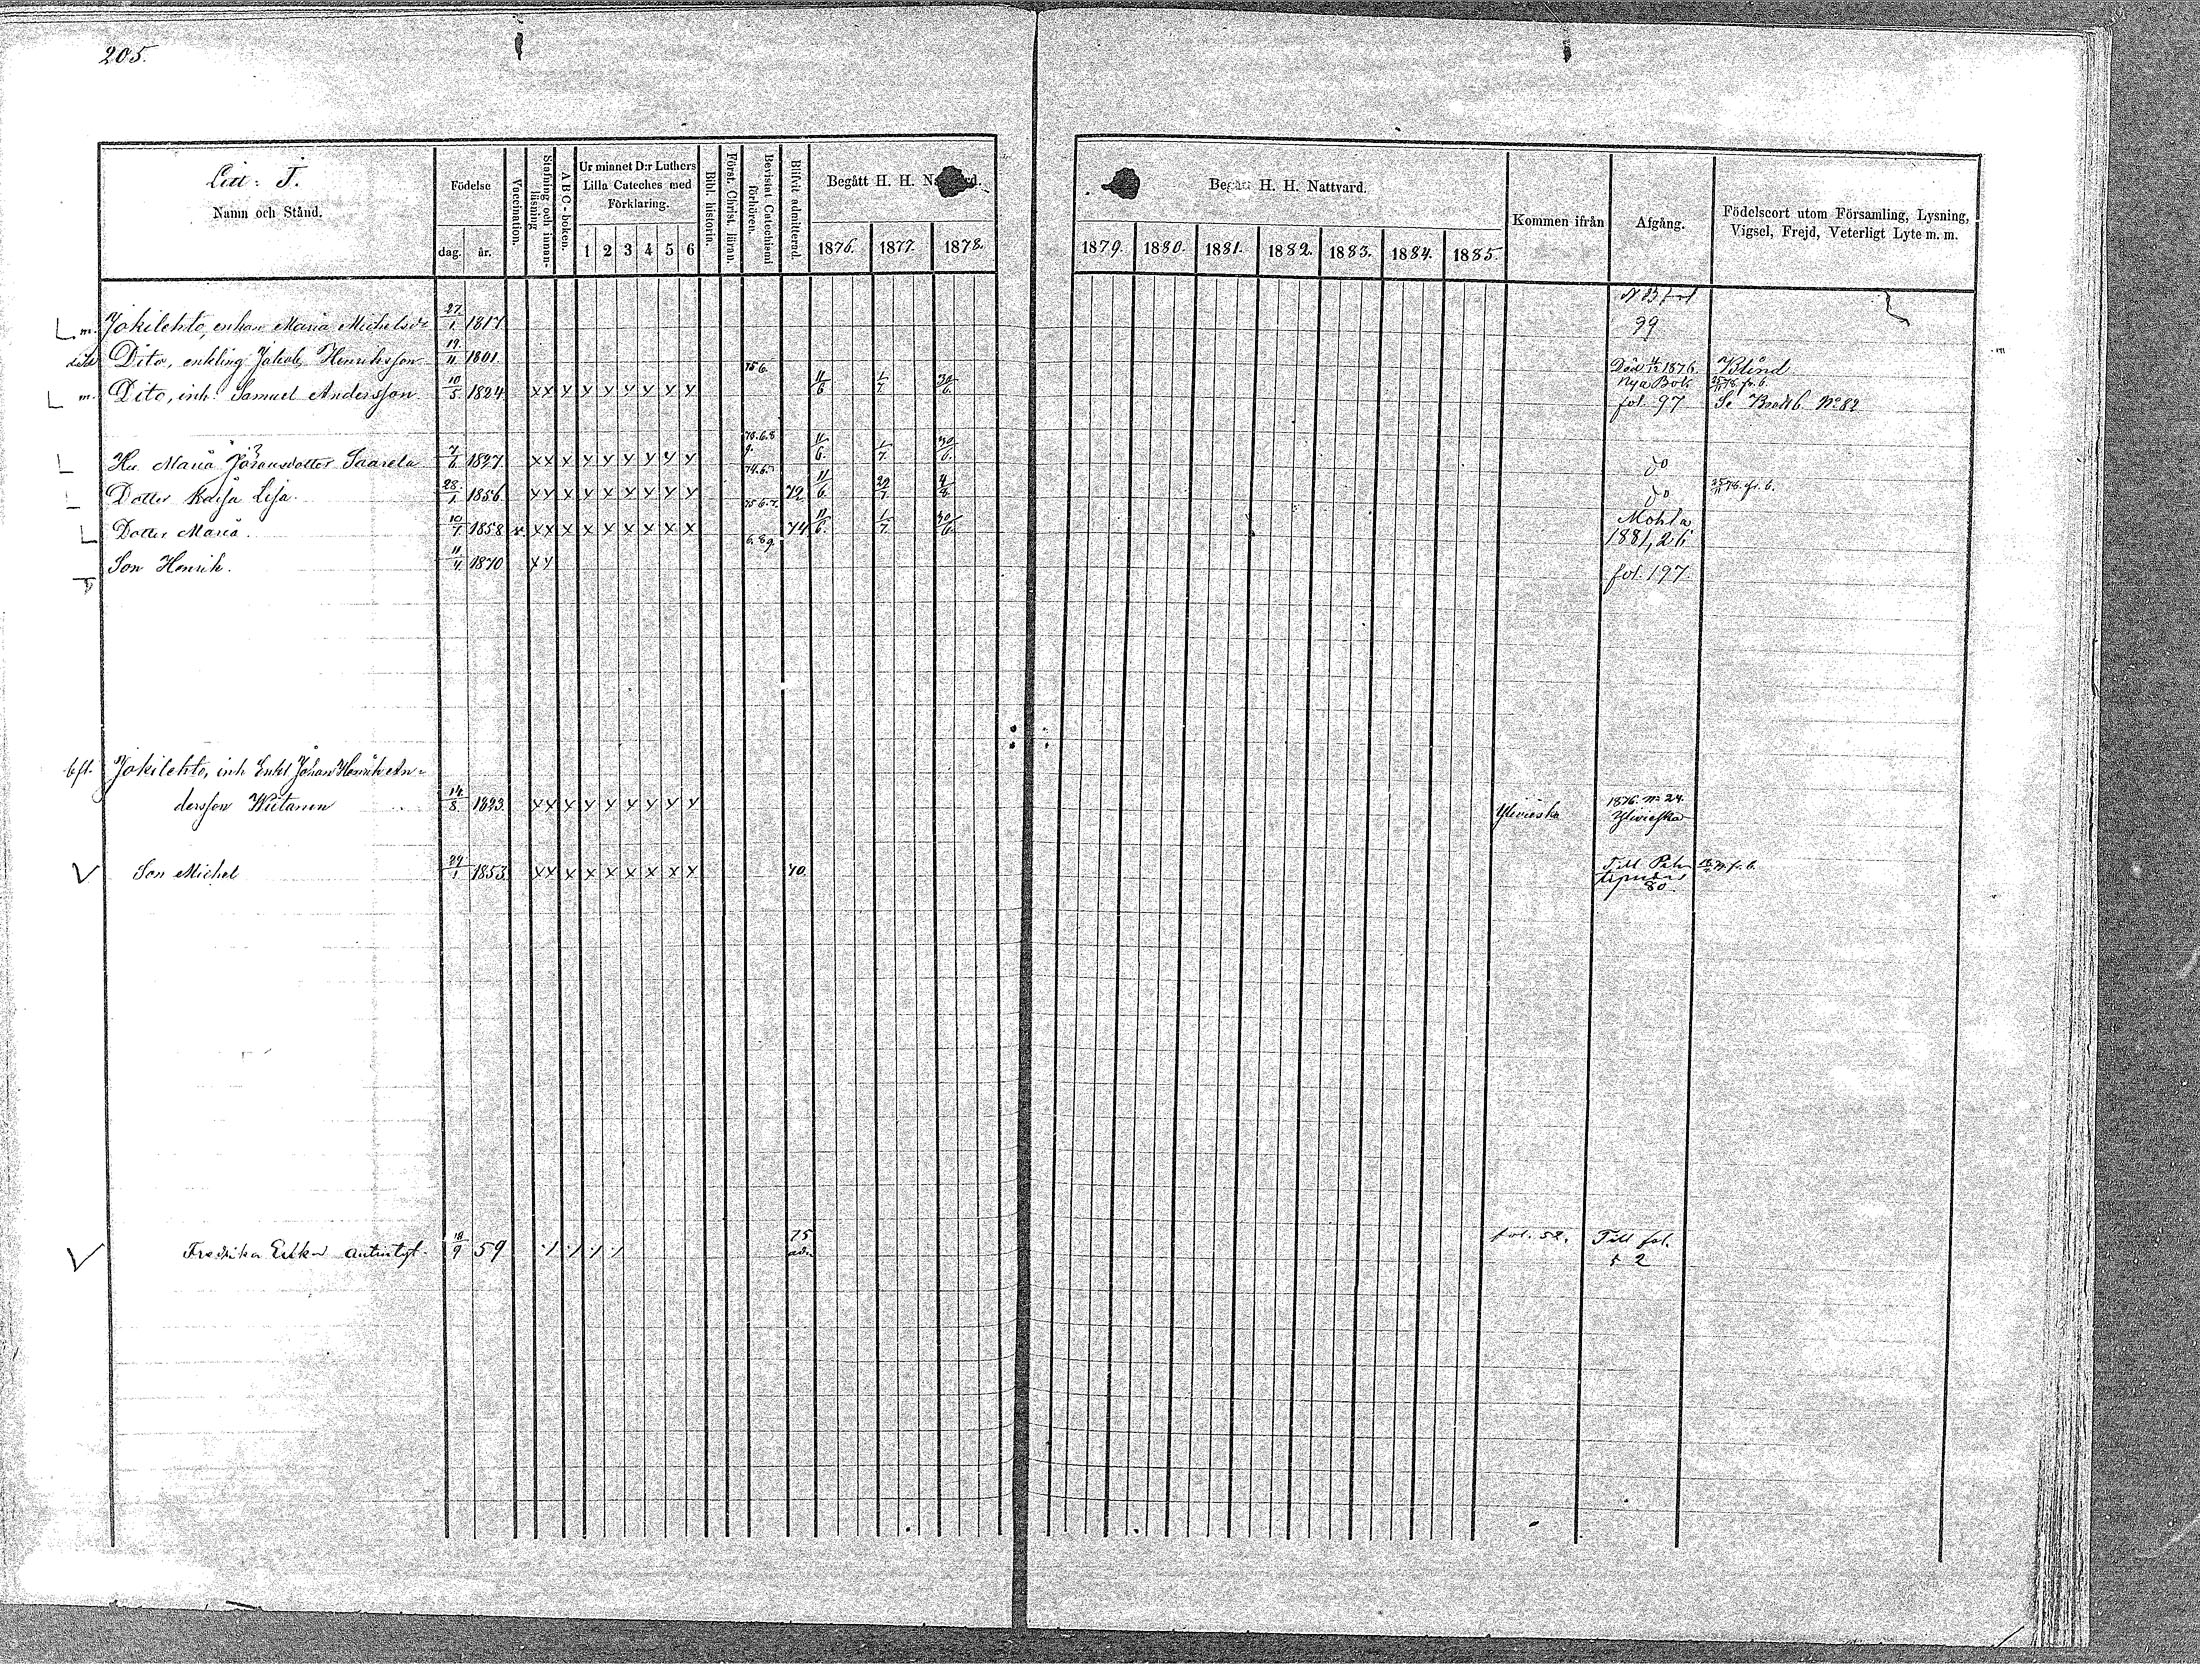 205.
Litt: J.
Namn och Stånd.
Födelse
dag.
år.
Vaccination.
Stafning och innan-
läsning
A B C - boken.
Ur minnet D:r Luthers
Lilla Cateches med
Förklaring.
1 2 3 4 5 6
Bibl. historia.
Först. Christ. läran.
Bevistat Catechismi
förhören.
Blifvit admitterad.
Begått H. H. Nattvard.
1876. 1877. 1878.
Begått H. H. Nattvard.
1879. 1880. 1881. 1882. 1883. 1884. 1885.
Kommen ifrån
Afgång.
Födelseort utom Församling, Lysning,
Vigsel, Frejd, Veterligt Lyte m. m.
m. Jokilehto, enkan Maria Michelsdr 27/1 1817 99
Dito, enkling Jakob Henriksson 19/11 1801 Död 1876. Blind
m. Dito, inh. Samuel Andersson 10/5 1824 xx x x x x x x x 75 6. 11/6 1/7 30/6 Nya Bok fol. 97 Se Brottb No 82
Hu Maria Johansdotter Saarela 7/6 1827 xx x x x x x x x 11/6. 1/7. 30/6. do
Dotter Kajsa Lisa. 28/1 1856 xx x x x x x x x 72 11/6. 29/7 4/8 do
Dotter Maria. 10/1 1858 x xx x x x x x x x 75 6.7. 74 11/6. 1/7 30/6 Mohla 1881, 26
Son Henrik. 11/4 1870 x x 6.89. fol. 197
Jokilehto, inh Enkl Johan Henrik An-
dersson Wiitanen 14/8 1823 xx x x x x x x x Ylivieska 1876. No 24. Ylivieska
Son Michel 29/1 1853 xx x x x x x x x 70. Till 80.
Fredrika Erika 18/9 59 75 fol. 52. Till fol. 52